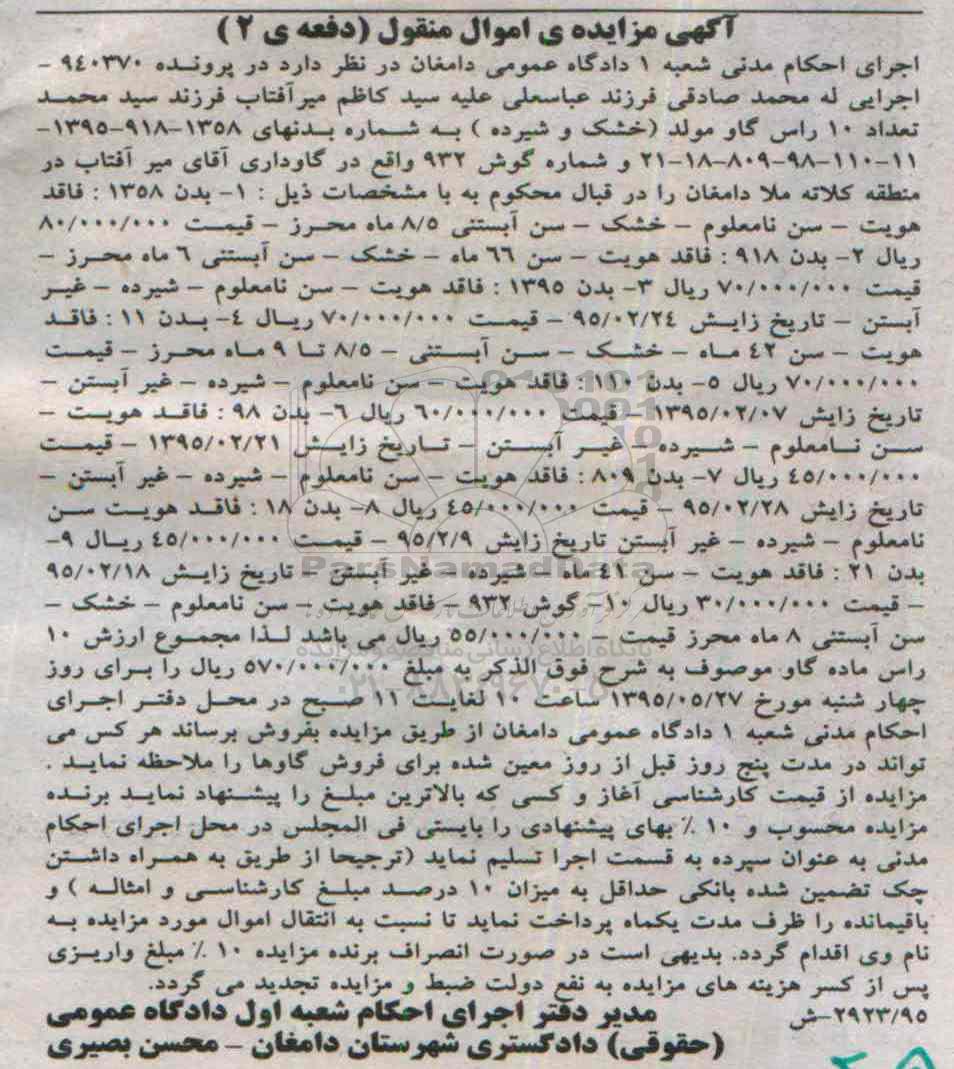 آگهی مزایده ی اموال منقول (دفعه ی ۲)
اجرای احکام مدنی شعبه ۱ دادگاه عمومی دامغان در نظر دارد در پرونده ۹٤۰۳۷۰ -
اجرایی له محمد صادقی فرزند عباسعلی علیه سید کاظم میرآفتاب فرزند سید محمد
تعداد ۱۰ راس گاو مولد (خشک و شیرده ) به شماره بدنهای ۱۳۵۸-۹۱۸-۱۳۹۵-
۱۱-۱۱۰-۹۸-۸۰۹-۱۸-۲۱ و شماره گوش ۹۳۲ واقع در گاوداری آقای میر آفتاب در
منطقه کلاته ملا دامغان را در قبال محکوم به با مشخصات ذیل : ۱- بدن ۱۳۵۸ : فاقد
هویت - سن نامعلوم - خشک - سن آبستنی ۸/۵ ماه محرز - قیمت ۸۰/۰۰۰/۰۰۰
ریال ۲- بدن ۹۱۸ : فاقد هویت - سن ٦٦ ماه - خشک - سن آبستنی ٦ ماه محرز -
قیمت ۷۰/۰۰۰/۰۰۰ ریال ۳- بدن ۱۳۹۵ : فاقد هویت - سن نامعلوم - شیرده - غیر
آبستن - تاریخ زایش ۹۵/۰۲/۲٤ - قیمت ۷۰/۰۰۰/۰۰۰ ریال ٤- بدن ۱۱ : فاقد
هویت - سن ٤۲ ماه - خشک - سن آبستنی - ۸/۵ تا ۹ ماه محرز - قیمت
۷۰/۰۰۰/۰۰۰ ریال ۵- بدن ۱۱۰ : فاقد هویت - سن نامعلوم - شیرده - غیر آبستن -
تاریخ زایش ۱۳۹۵/۰۲/۰۷ - قیمت ٦۰/۰۰۰/۰۰۰ ریال ٦- بدن ۹۸ : فاقد هویت -
سن نامعلوم - شیرده - غیر آبستن - تاریخ زایش ۱۳۹۵/۰۲/۲۱ - قیمت
٤۵/۰۰۰/۰۰۰ ریال ۷- بدن ۸۰۹ : فاقد هویت - سن نامعلوم - شیرده - غیر آبستن -
تاریخ زایش ۹۵/۰۲/۲۸ - قیمت ٤۵/۰۰۰/۰۰۰ ریال ۸- بدن ۱۸ : فاقد هویت سن
نامعلوم - شیرده - غیر آبستن تاریخ زایش ۹۵/۲/۹ - قیمت ٤۵/۰۰۰/۰۰۰ ریال ۹-
بدن ۲۱ : فاقد هویت - سن ٤۱ ماه - شیرده - غیر آبستن - تاریخ زایش ۹۵/۰۲/۱۸
- قیمت ۳۰/۰۰۰/۰۰۰ ریال ۱۰- گوش ۹۳۲ - فاقد هویت - سن نامعلوم - خشک -
سن آبستنی ۸ ماه محرز قیمت - ۵۵/۰۰۰/۰۰۰ ریال می باشد لذا مجموع ارزش ۱۰
راس ماده گاو موصوف به شرح فوق الذکر به مبلغ ۵۷۰/۰۰۰/۰۰۰ ریال را برای روز
چهار شنبه مورخ ۱۳۹۵/۰۵/۲۷ ساعت ۱۰ لغایت ۱۱ صبح در محل دفتر اجرای
احکام مدنی شعبه ۱ دادگاه عمومی دامغان از طریق مزایده بفروش برساند هر کس می
تواند در مدت پنج روز قبل از روز معین شده برای فروش گاوها را ملاحظه نماید .
مزایده از قیمت کارشناسی آغاز و کسی که بالاترین مبلغ را پیشنهاد نماید برنده
مزایده محسوب و ۱۰ ٪ بهای پیشنهادی را بایستی فی المجلس در محل اجرای احکام
مدنی به عنوان سپرده به قسمت اجرا تسلیم نماید (ترجیحا از طریق به همراه داشتن
چک تضمین شده بانکی حداقل به میزان ۱۰ درصد مبلغ کارشناسی و امثاله ) و
باقیمانده را ظرف مدت یکماه پرداخت نماید تا نسبت به انتقال اموال مورد مزایده به
نام وی اقدام گردد. بدیهی است در صورت انصراف برنده مزایده ۱۰ ٪ مبلغ واریزی
پس از کسر هزینه های مزایده به نفع دولت ضبط و مزایده تجدید می گردد.
۲۹۲۳/۹۵-ش مدیر دفتر اجرای احکام شعبه اول دادگاه عمومی
(حقوقی) دادگستری شهرستان دامغان - محسن بصیری
ParsNamadData
پایگاه اطلاع رسانی مناقصه و مزایده